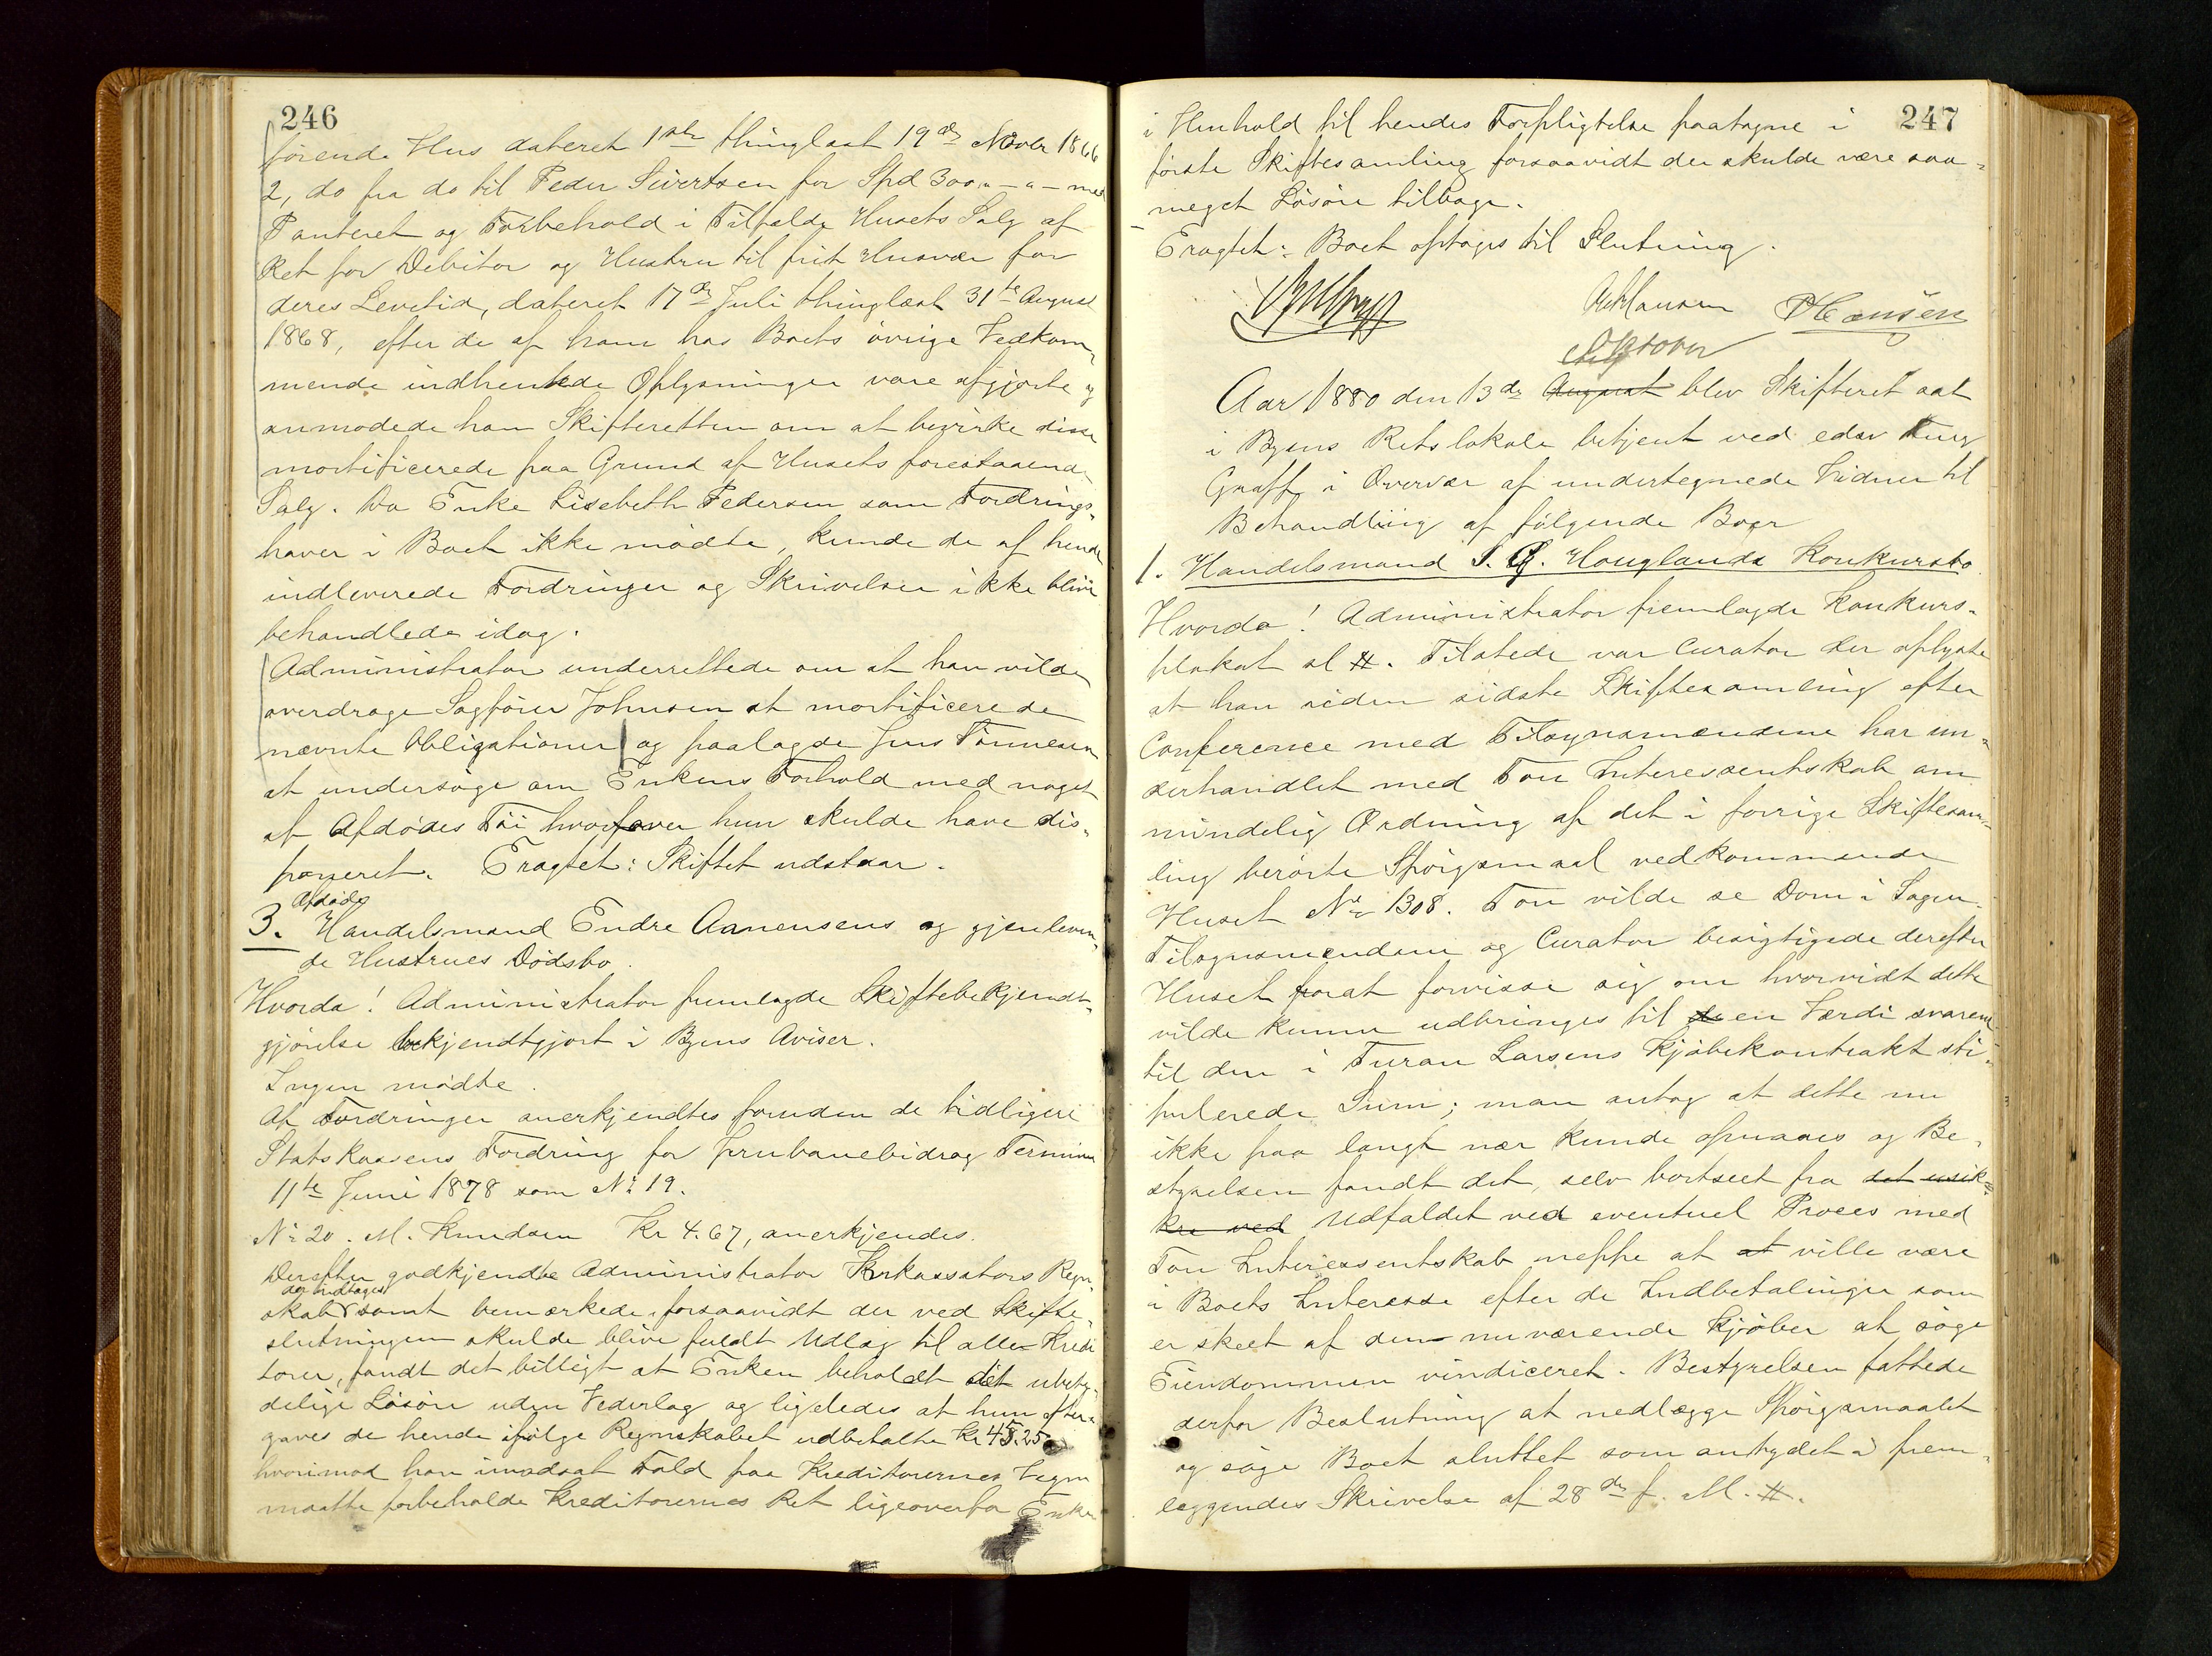 246
förende Hus dateret 1ste thinglæst 19de Novbr 1866
2, do fra do til Peder Sivertsen for Spd 300 " - " - med
Panteret og Forbehold i Tilfælde Husets Salg af
Ret for Debitor og Hustru til frit Husvær for
deres Levetid, dateret 17de Juli thinglæst 31te August
1868, efter de af ham hos Boets övrige Vedkom-
mende indhentede Oplysninger vare afgjorte og
anmodede han Skifteretten om at bevirke disse
mortificerede paa Grund af Husets forestaaende
Salg. Da Enke Lisebeth Pedersen som Fordrings-
haver i Boet ikke mödte, kunde de af hende
indleverede Fordringer og Skrivelser ikke blive
behandlede idag.
Administrator underrettede om at han vilde
overdrage Sagförer Johnsen at mortificere de
nævnte Obligationer og paalagde Jens Tönnesen
at undersöge om Enkens Forhold med noget
af Afdödes Töi hvorover hun skulde have dis-
poneret. Eragtet: Skiftet udstaar.
Afdöde
3. Handelsmand Endre Aanensens og gjenleven-
de Hustrues Dödsbo.
Hvorda! Administrator fremlagde Skiftebekjendt-
gjörelse bekjendtgjort i Byens Aviser.
Ingen mödte.
Af Fordringer anerkjendtes foruden de tidligere
Statskassens Fordring for Jernbanebidrag Termin
11te Juni 1878 som No 19.
No 20. M. Knudsen Kr 4.67, anerkjendes.
Derefter godkjendte Administrator Inkassators Regn-
der indtages
skab samt bemærkede, forsaavidt der ved Skifte-
slutningen skulde blive fuldt Udlæg til alle Kredi
torer, fandt det billigt at Enken beholdt det ubety-
delige Lösöre uden Vederlag og ligeledes at hun efter-
gaves de hende ifölge Regnskabet udbetalte Kr 45.25
hvorimod han imodsat Fald paa Kreditorernes Vegne
maatte forbeholde Kreditorernes Ret ligeoverfor Enken
247
i Henhold til hendes Forpligtelse paatagne i
förste Skiftesamling forsaavidt der skulde være saa-
meget Lösöre tilbage.
Eragtet: Boet optages til Slutning.
PHansen
Oktober
Aar 1880 den 13de August blev Skifteret sat
i Byens Retslokale betjent ved edsv Fuldm
Graff i Overvær af undertegnede Vidner til
Behandling af fölgende Boer
1. Handelsmand S. G. Houglands Konkursbo.
Hvorda! Administrator fremlagde Konkurs-
plakat sl #. Tilstede var Curator der oplyste
at han siden sidste Skiftesamling efter
Conference med Tilsynsmændene har un-
derhandlet med Tou Interessentskab om
mindelig Ordning af det i forrige Skiftesam-
ling berörte Spörgsmaal vedkommende
Huset No 1308. Tou vilde se Dom i Sagen.
Tilsynsmændene og Curator besigtigede derefter
Huset forat forvisse sig om hvorvidt dette
vilde kunne udbringes til de en Værdi svarende
til den i Turan Larsens Kjöbekontrakt sti-
pulerede Sum; man antog at dette nu
ikke paa langt nær kunde opnaaes og Be-
styrelsen fandt det, selv bortseet fra det usik-
kre ved Udfaldet ved eventuel Proces med
Tou Interessentskab neppe at at ville være
i Boets Interesse efter de Indbetalinger som
er skeet af den nuværende Kjöber at söge
Eiendommen vindiceret. Bestyrelsen fattede
derfor Beslutning at nedlægge Spörgsmaalet
og söge Boet sluttet som antydet i frem-
læggendes Skrivelse af 28de f. M. #.